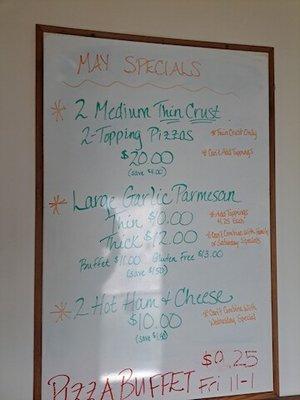 MAY SPECIALS
* 2 Medium Thin Crust
2-Topping Pizzas
* Thin Crust Only
$20.00
* Can't Add Toppings
(save $4.00)
* Large Garlic Parmesan
Thin $10.00
* Add Toppings
$1.25 Each
Thick $12.00
* Can't Combine with Family
or Saturday Specials
Buffet $11.00 Gluten Free $13.00
(save $1.50)
* 2 Hot Ham & Cheese
* Can't Combine With
Wednesday Special
$10.00
$0.25
PIZZA BUFFET Fri 11-1